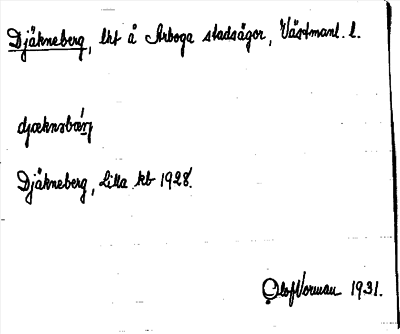 Djäkneberg, lht å Arboga stadsägor, Västmanl. l.
djæknsbærj
Djäkneberg, Lilla kb 1928.
Olof Vorman 1931.